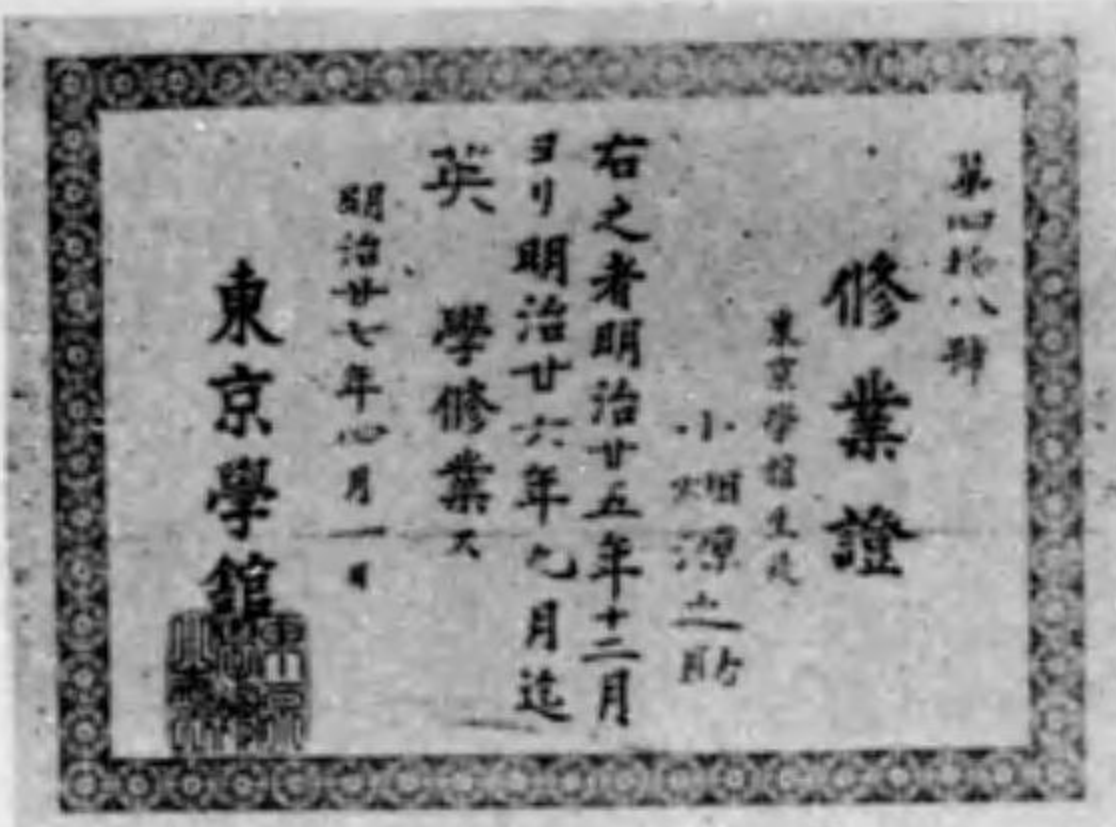 第四拾八号
修業證
東京學舘生徒
小畑源之助
右之者明治廿五年十二月
ヨリ明治廿六年九月迄
英 學修業ス
明治廿七年 月一日
東京學舘